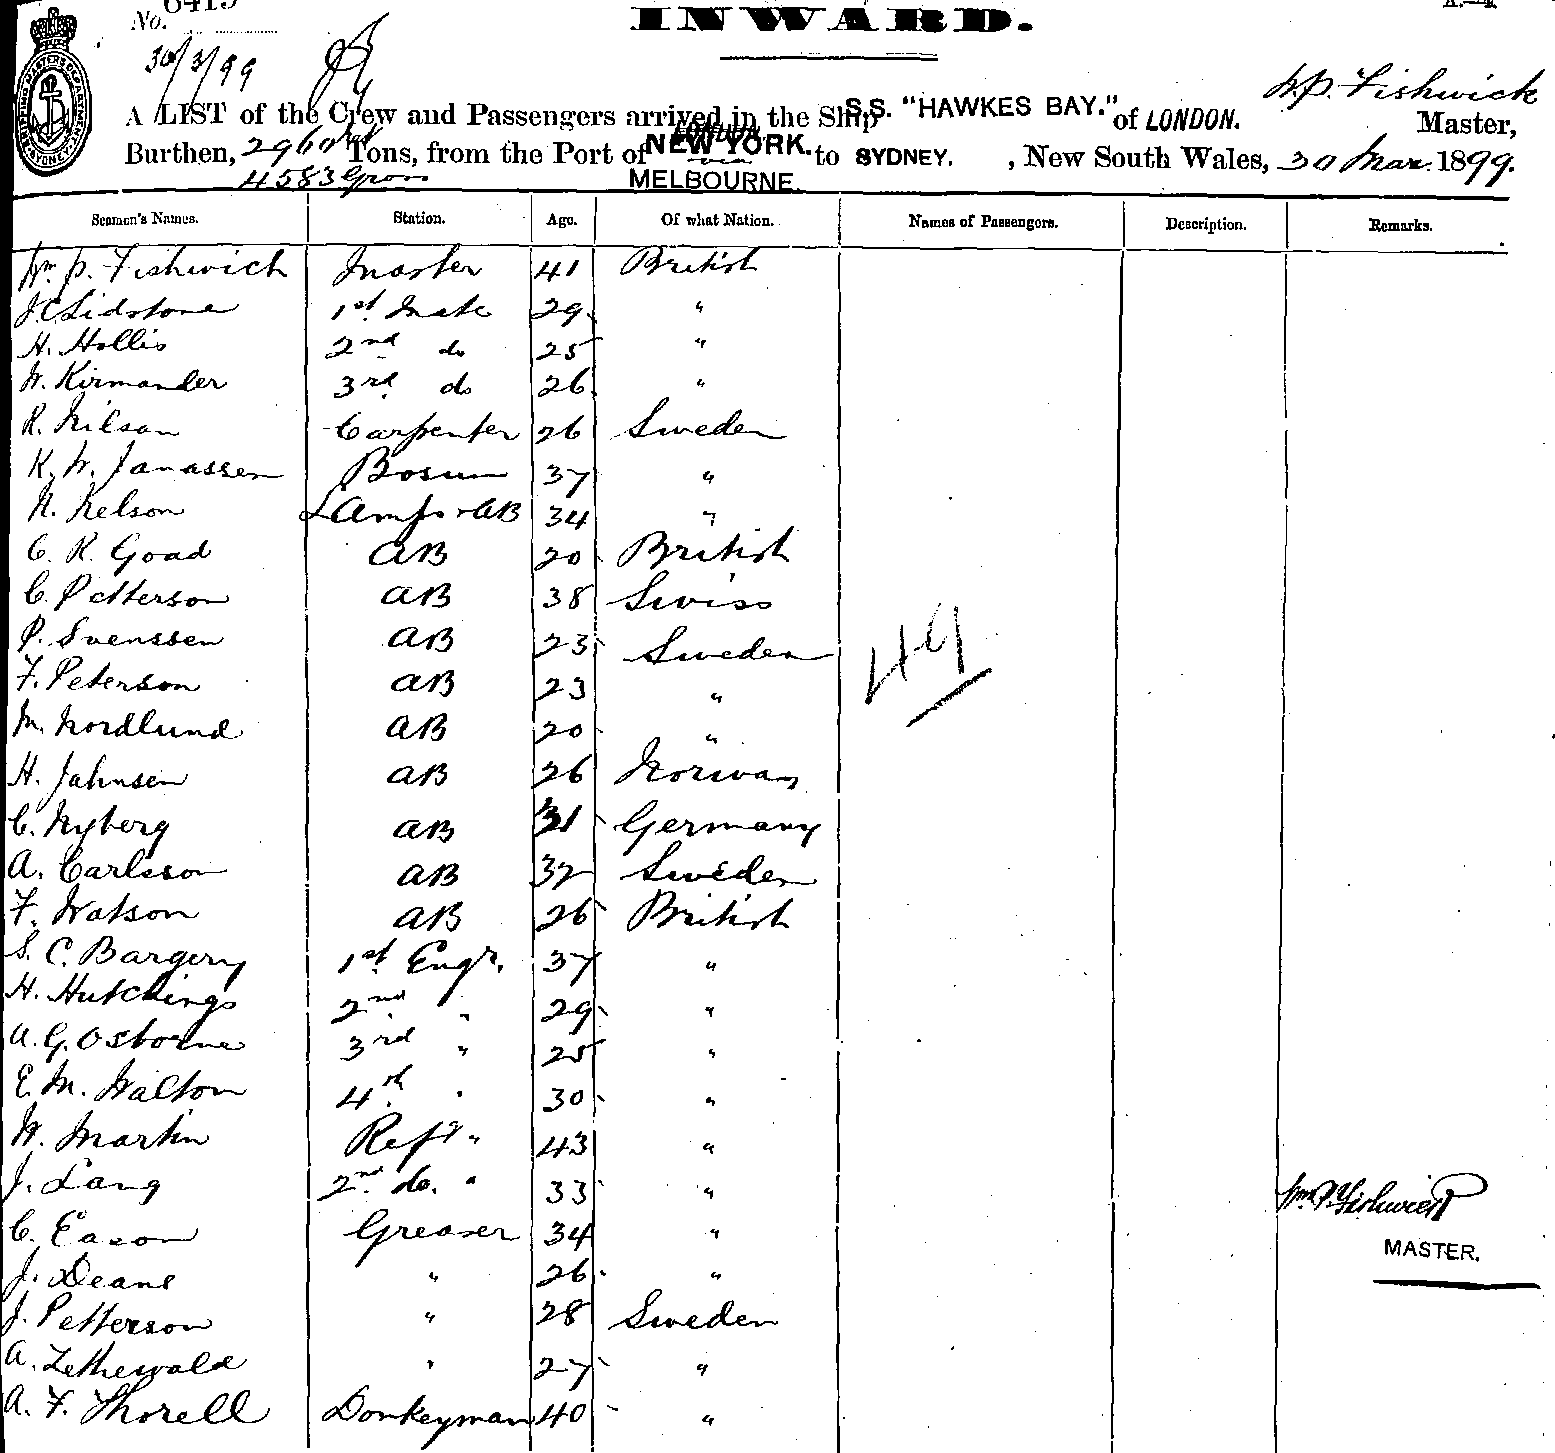 No. 6415
INWARD.
30/3/99
W. P. Fishwick
A LIST of the Crew and Passengers arrived in the Ship S.S. "HAWKES BAY." of LONDON. Master,
Burthen, 2960 Tons, from the Port of NEW YORK. to SYDNEY. , New South Wales, 30 Mar. 1899.
4583 Gross via MELBOURNE.
Seamen's Names. Station. Age. Of what Nation. Names of Passengers. Description. Remarks.
Wm. P. Fishwick Master 41 British
J. C. Lidstone 1st Mate 29 "
H. Hollis 2nd do 25 "
W. Kirmander 3rd do 26 "
R. Nilson Carpenter 26 Sweden
K. W. Janassen Bosun 37 "
N. Nelson Lamps & AB 34 "
C. R. Goad AB 20 British
C. Petterson AB 38 Swiss
P. Svenssen AB 23 Sweden
F. Peterson AB 23 "
49
M. Nordlund AB 20 "
H. Jahnsen AB 26 Norway
C. Nyberg AB 31 Germany
A. Carlsson AB 32 Sweden
F. Watson AB 26 British
S. C. Bargery 1st Engr. 37 "
H. Hutchings 2nd " 29 "
A. G. Osborne 3rd " 25 "
E. M. Walton 4th " 30 "
W. Martin Refr " 43 "
J. Lang 2nd do. " 33 "
Wm. P. Fishwick
C. Eason Greaser 34 "
MASTER.
J. Deane " 26 "
J. Petterson " 28 Sweden
A. Zethewald " 27 "
A. F. Thorell Donkeyman 40 "